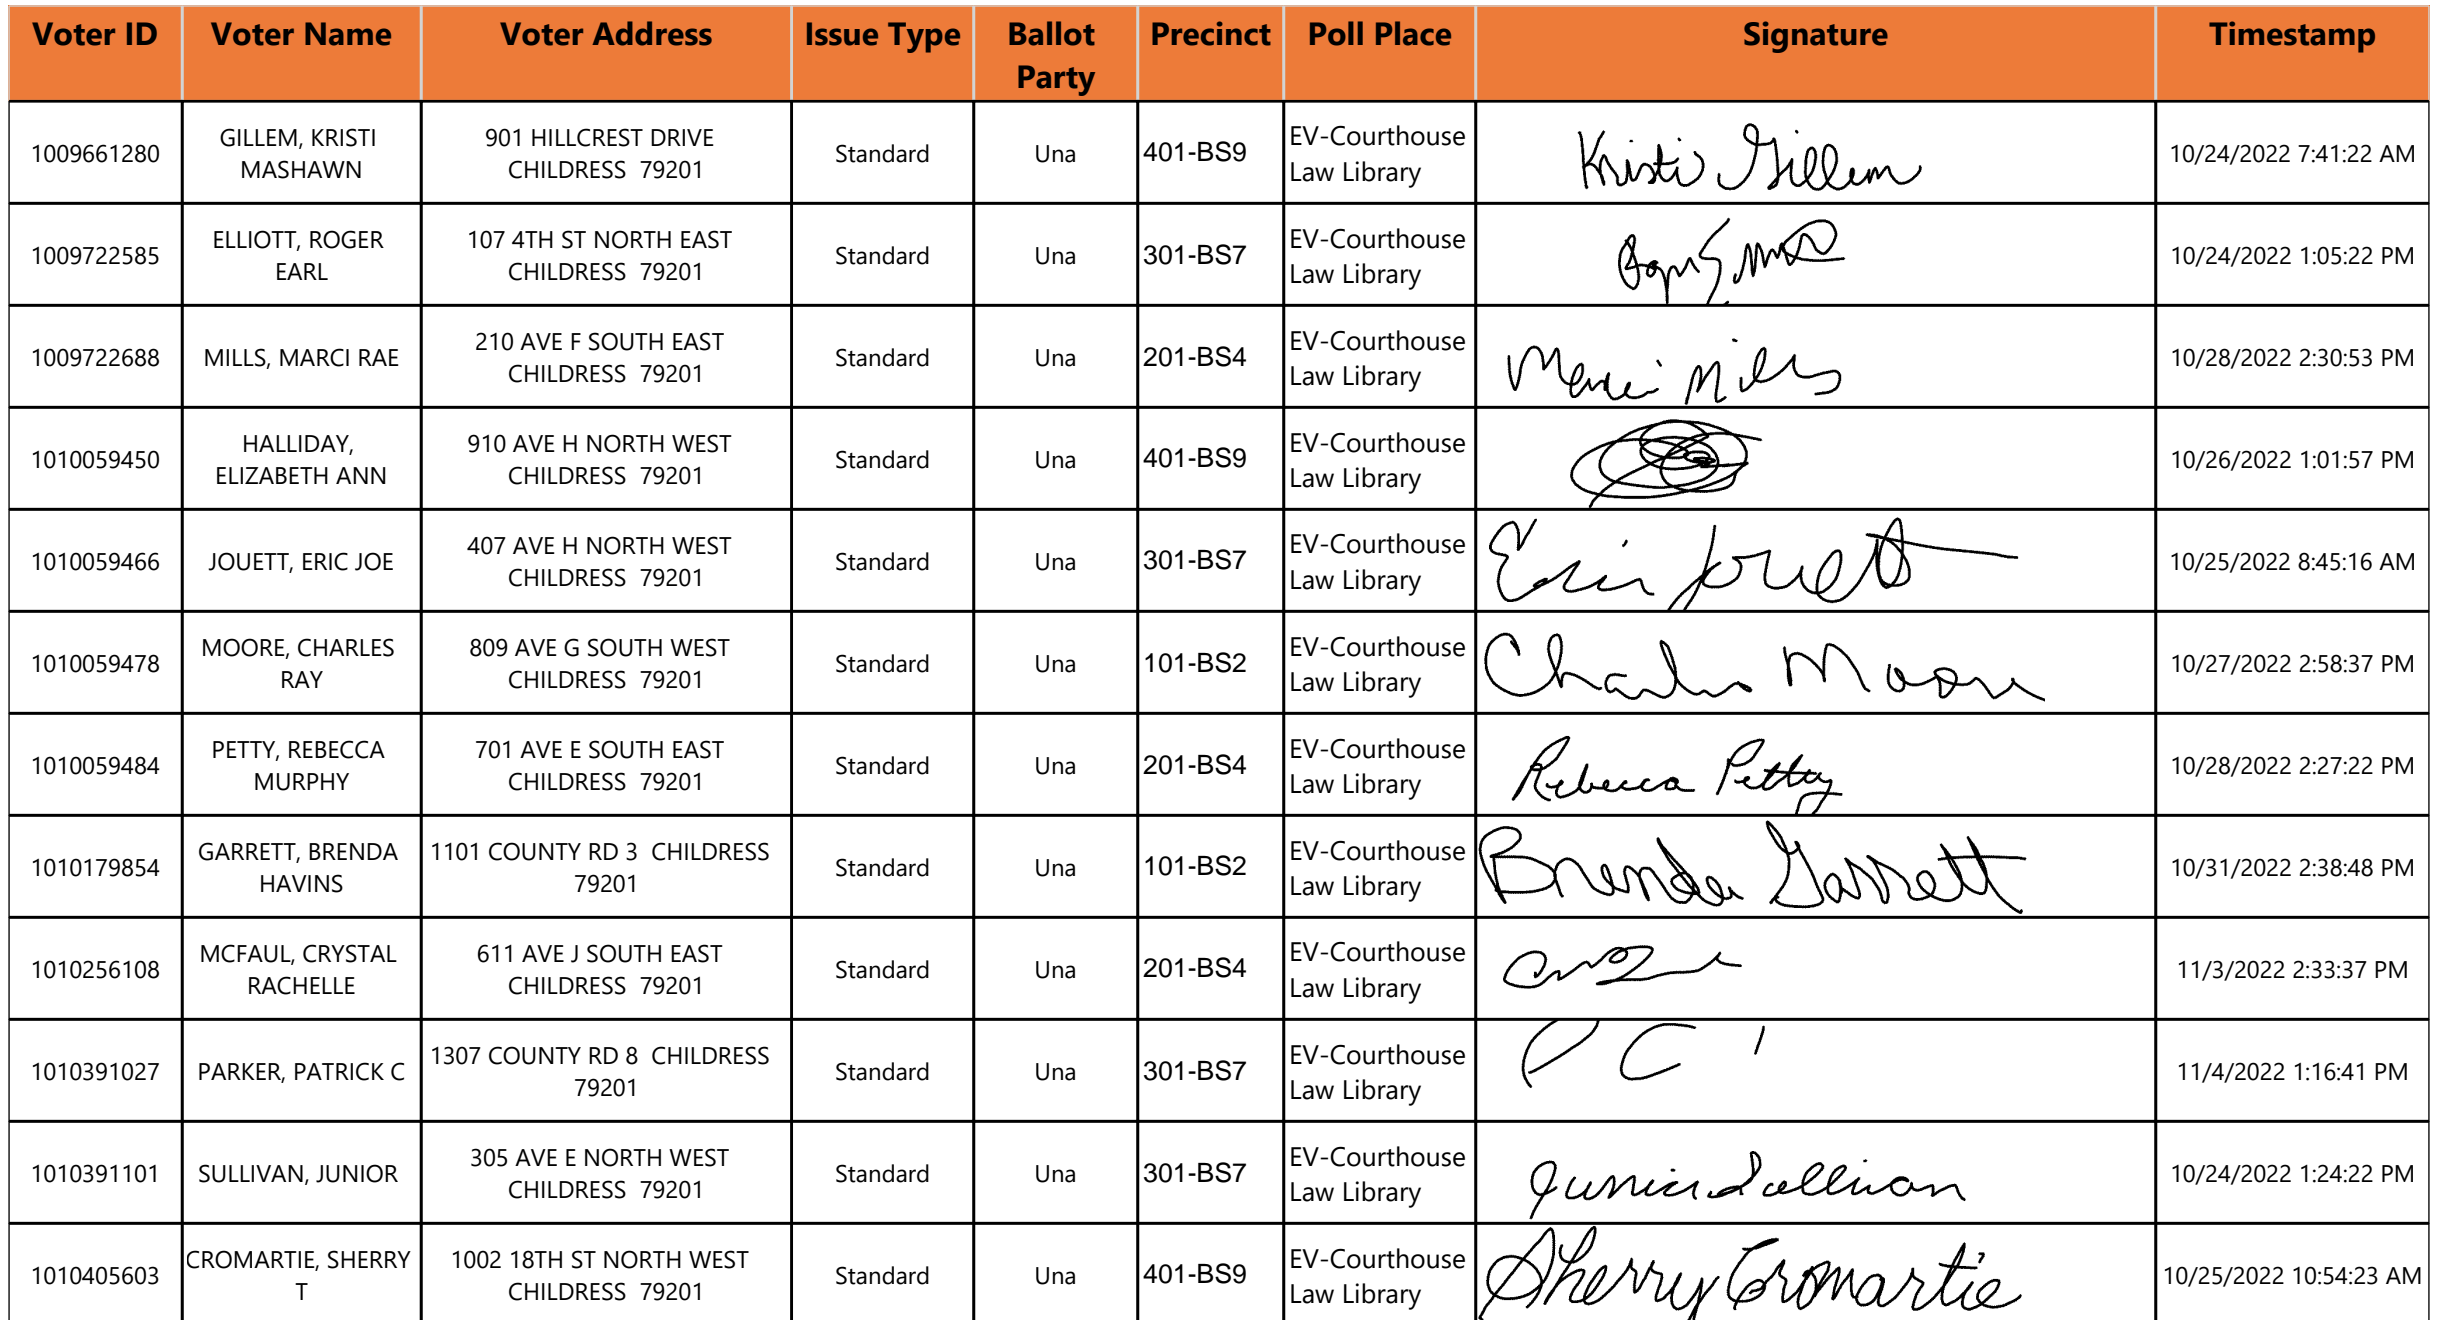 Voter ID Voter Name Voter Address Issue Type Ballot Party Precinct Poll Place Signature Timestamp
1009661280 GILLEM, KRISTI MASHAWN 901 HILLCREST DRIVE CHILDRESS 79201 Standard Una 401-BS9 EV-Courthouse Law Library Kristi Gillem 10/24/2022 7:41:22 AM
1009722585 ELLIOTT, ROGER EARL 107 4TH ST NORTH EAST CHILDRESS 79201 Standard Una 301-BS7 EV-Courthouse Law Library 10/24/2022 1:05:22 PM
1009722688 MILLS, MARCI RAE 210 AVE F SOUTH EAST CHILDRESS 79201 Standard Una 201-BS4 EV-Courthouse Law Library Marci Mills 10/28/2022 2:30:53 PM
1010059450 HALLIDAY, ELIZABETH ANN 910 AVE H NORTH WEST CHILDRESS 79201 Standard Una 401-BS9 EV-Courthouse Law Library 10/26/2022 1:01:57 PM
1010059466 JOUETT, ERIC JOE 407 AVE H NORTH WEST CHILDRESS 79201 Standard Una 301-BS7 EV-Courthouse Law Library Eric Jouett 10/25/2022 8:45:16 AM
1010059478 MOORE, CHARLES RAY 809 AVE G SOUTH WEST CHILDRESS 79201 Standard Una 101-BS2 EV-Courthouse Law Library Charles Moore 10/27/2022 2:58:37 PM
1010059484 PETTY, REBECCA MURPHY 701 AVE E SOUTH EAST CHILDRESS 79201 Standard Una 201-BS4 EV-Courthouse Law Library Rebecca Petty 10/28/2022 2:27:22 PM
1010179854 GARRETT, BRENDA HAVINS 1101 COUNTY RD 3 CHILDRESS 79201 Standard Una 101-BS2 EV-Courthouse Law Library Brenda Garrett 10/31/2022 2:38:48 PM
1010256108 MCFAUL, CRYSTAL RACHELLE 611 AVE J SOUTH EAST CHILDRESS 79201 Standard Una 201-BS4 EV-Courthouse Law Library 11/3/2022 2:33:37 PM
1010391027 PARKER, PATRICK C 1307 COUNTY RD 8 CHILDRESS 79201 Standard Una 301-BS7 EV-Courthouse Law Library P C 11/4/2022 1:16:41 PM
1010391101 SULLIVAN, JUNIOR 305 AVE E NORTH WEST CHILDRESS 79201 Standard Una 301-BS7 EV-Courthouse Law Library Junior Sullivan 10/24/2022 1:24:22 PM
1010405603 CROMARTIE, SHERRY T 1002 18TH ST NORTH WEST CHILDRESS 79201 Standard Una 401-BS9 EV-Courthouse Law Library Sherry Cromartie 10/25/2022 10:54:23 AM